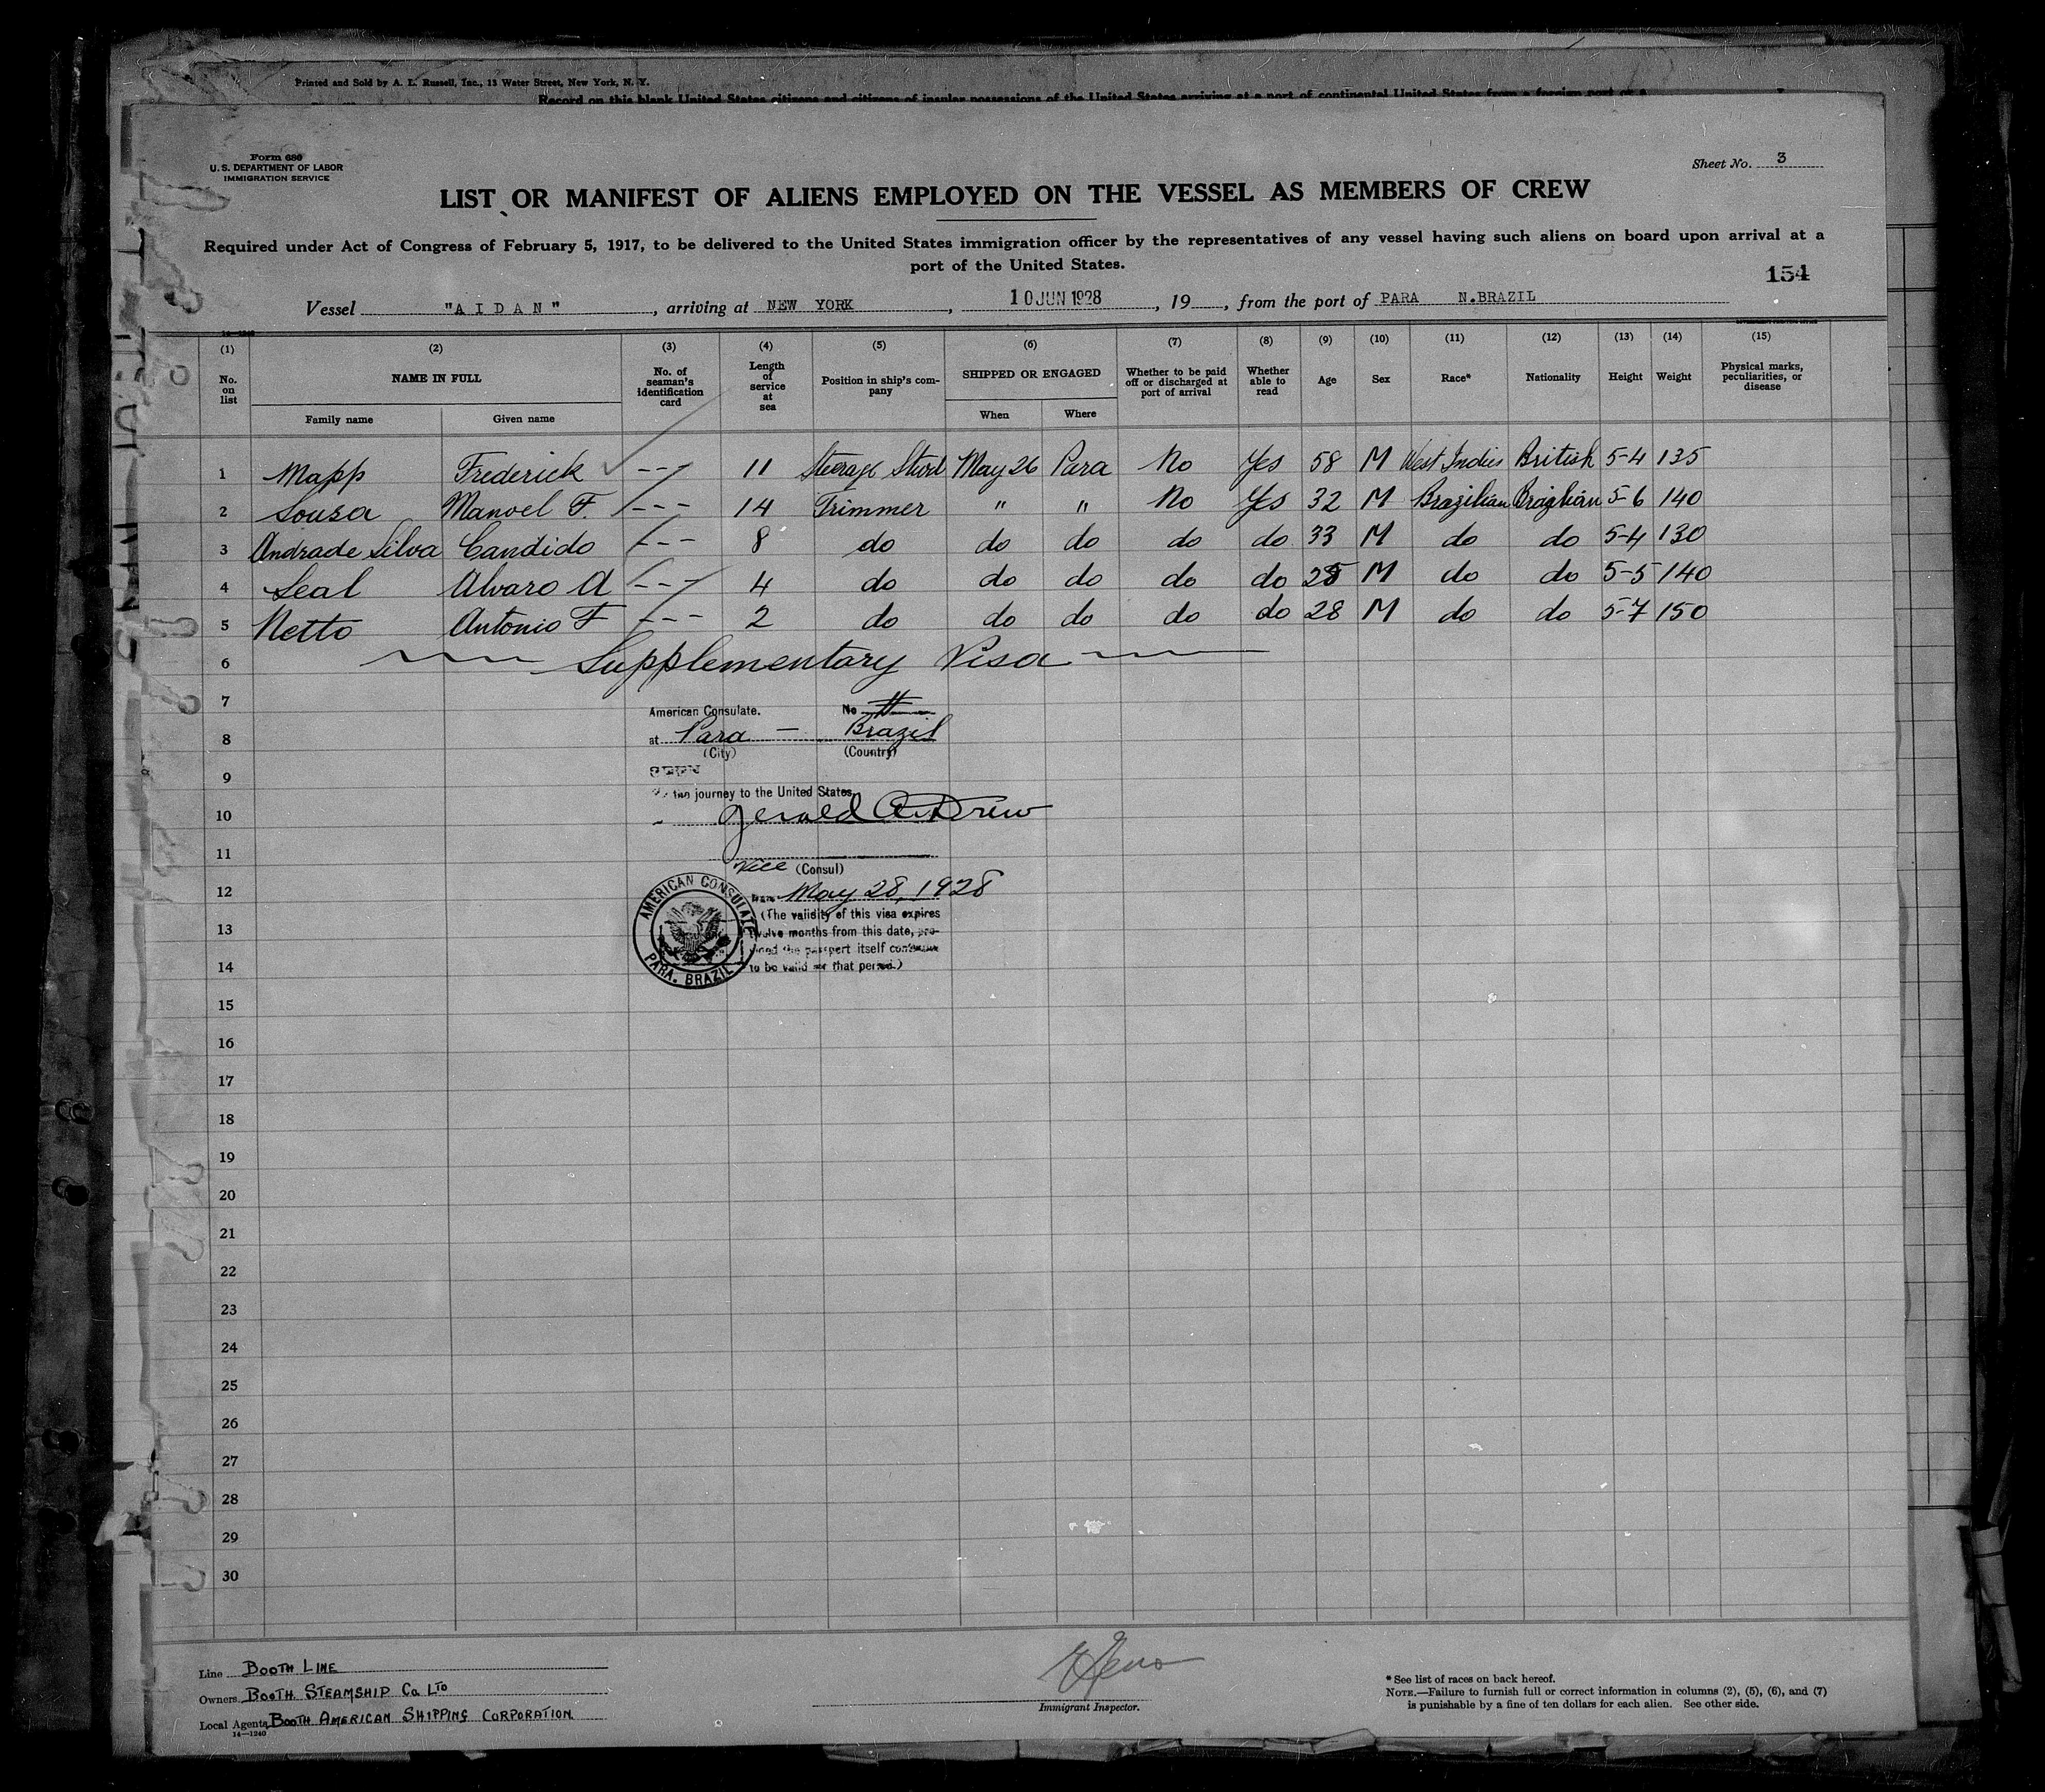 Printed and Sold by A. L. Russell, Inc., 13 Water Street, New York, N. Y.
Record on this blank United States citizens and citizens of insular possessions of the United States arriving at a port of continental United States from a foreign port or a
Form 680
U. S. DEPARTMENT OF LABOR
IMMIGRATION SERVICE
Sheet No. 3
LIST OR MANIFEST OF ALIENS EMPLOYED ON THE VESSEL AS MEMBERS OF CREW
Required under Act of Congress of February 5, 1917, to be delivered to the United States immigration officer by the representatives of any vessel having such aliens on board upon arrival at a
port of the United States.
154
Vessel "AIDAN", arriving at NEW YORK, 10 JUN 1928, 19, from the port of PARA N.BRAZIL
14—1240
(1) (2) (3) (4) (5) (6) (7) (8) (9) (10) (11) (12) (13) (14) (15)
No. on list NAME IN FULL No. of seaman's identification card Length of service at sea Position in ship's company SHIPPED OR ENGAGED Whether to be paid off or discharged at port of arrival Whether able to read Age Sex Race* Nationality Height Weight Physical marks, peculiarities, or disease
Family name Given name When Where
1 Mapp Frederick --- 11 Steerage Stwd May 26 Para No Yes 58 M West Indies British 5-4 135
2 Sousa Manoel F. --- 14 Trimmer " " No Yes 32 M Brazilian Brazilian 5-6 140
3 Andrade Silva Candido --- 8 do do do do do 33 M do do 5-4 130
4 Leal Alvaro A --- 4 do do do do do 25 M do do 5-5 140
5 Netto Antonio F --- 2 do do do do do 28 M do do 5-7 150
6 Supplementary Visa
7 American Consulate. No
8 at Para — Brazil
(City) (Country)
9 SEEN
the journey to the United States
10 Gerald A. Drew
11
Vice (Consul)
12 May 28, 1928
(The validity of this visa expires
13 twelve months from this date, pro-
vided the passport itself continues
14 to be valid for that period.)
AMERICAN CONSULATE
PARA, BRAZIL
15
16
17
18
19
20
21
22
23
24
25
26
27
28
29
30
Line BOOTH LINE
Owners BOOTH STEAMSHIP Co. LTD
Local Agents BOOTH AMERICAN SHIPPING CORPORATION
14—1240
Immigrant Inspector.
* See list of races on back hereof.
NOTE.—Failure to furnish full or correct information in columns (2), (5), (6), and (7)
is punishable by a fine of ten dollars for each alien. See other side.